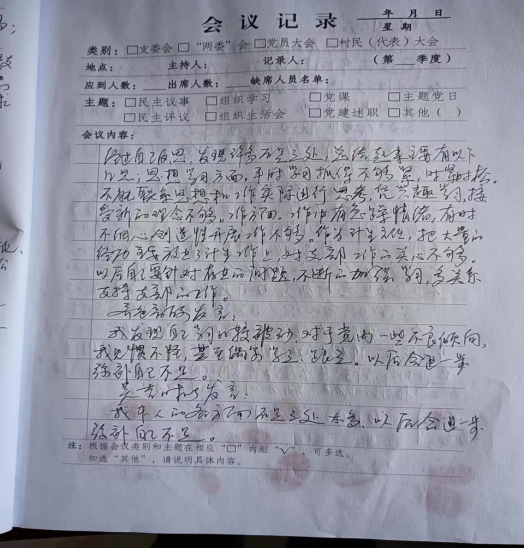 会议记录
年 月 日
星期
类别：□支委会 □“两委”会 □党员大会 □村民（代表）大会
地点： 主持人： 记录人： （第 季度）
应到人数： 出席人数： 缺席人员名单：
主题：□民主议事 □组织学习 □党课 □主题党日
□民主评议 □组织生活会 □党建述职 □其他（ ）
会议内容：
经过自己反思，发现许多不足之处，总结起来主要有以下
几点；思想学习方面，平时学习抓得不够紧，时紧时松。
不能联系思想和工作实际进行思考，凭兴趣学习，接
受新的理念不够。工作方面，工作中有急躁情绪，有时
不细心，创造性开展工作不够。作为计生主任，把大量的
精力都放在了计生工作上，对支部工作的关心不够。
以后自己要针对存在的问题，不断的加强学习，多关系
支持支部的工作。
的发言：
我发现自己学习比较被动，对于党内一些不良倾向，
我见惯不怪，甚至偶尔。以后会进一步
弥补自己不足。
发言：
我本人的各方面不足之处太多，以后会进一步
弥补自己不足。
注：根据会议类别和主题在相应“□”内划“√”，可多选。
如选“其他”，请说明具体内容。